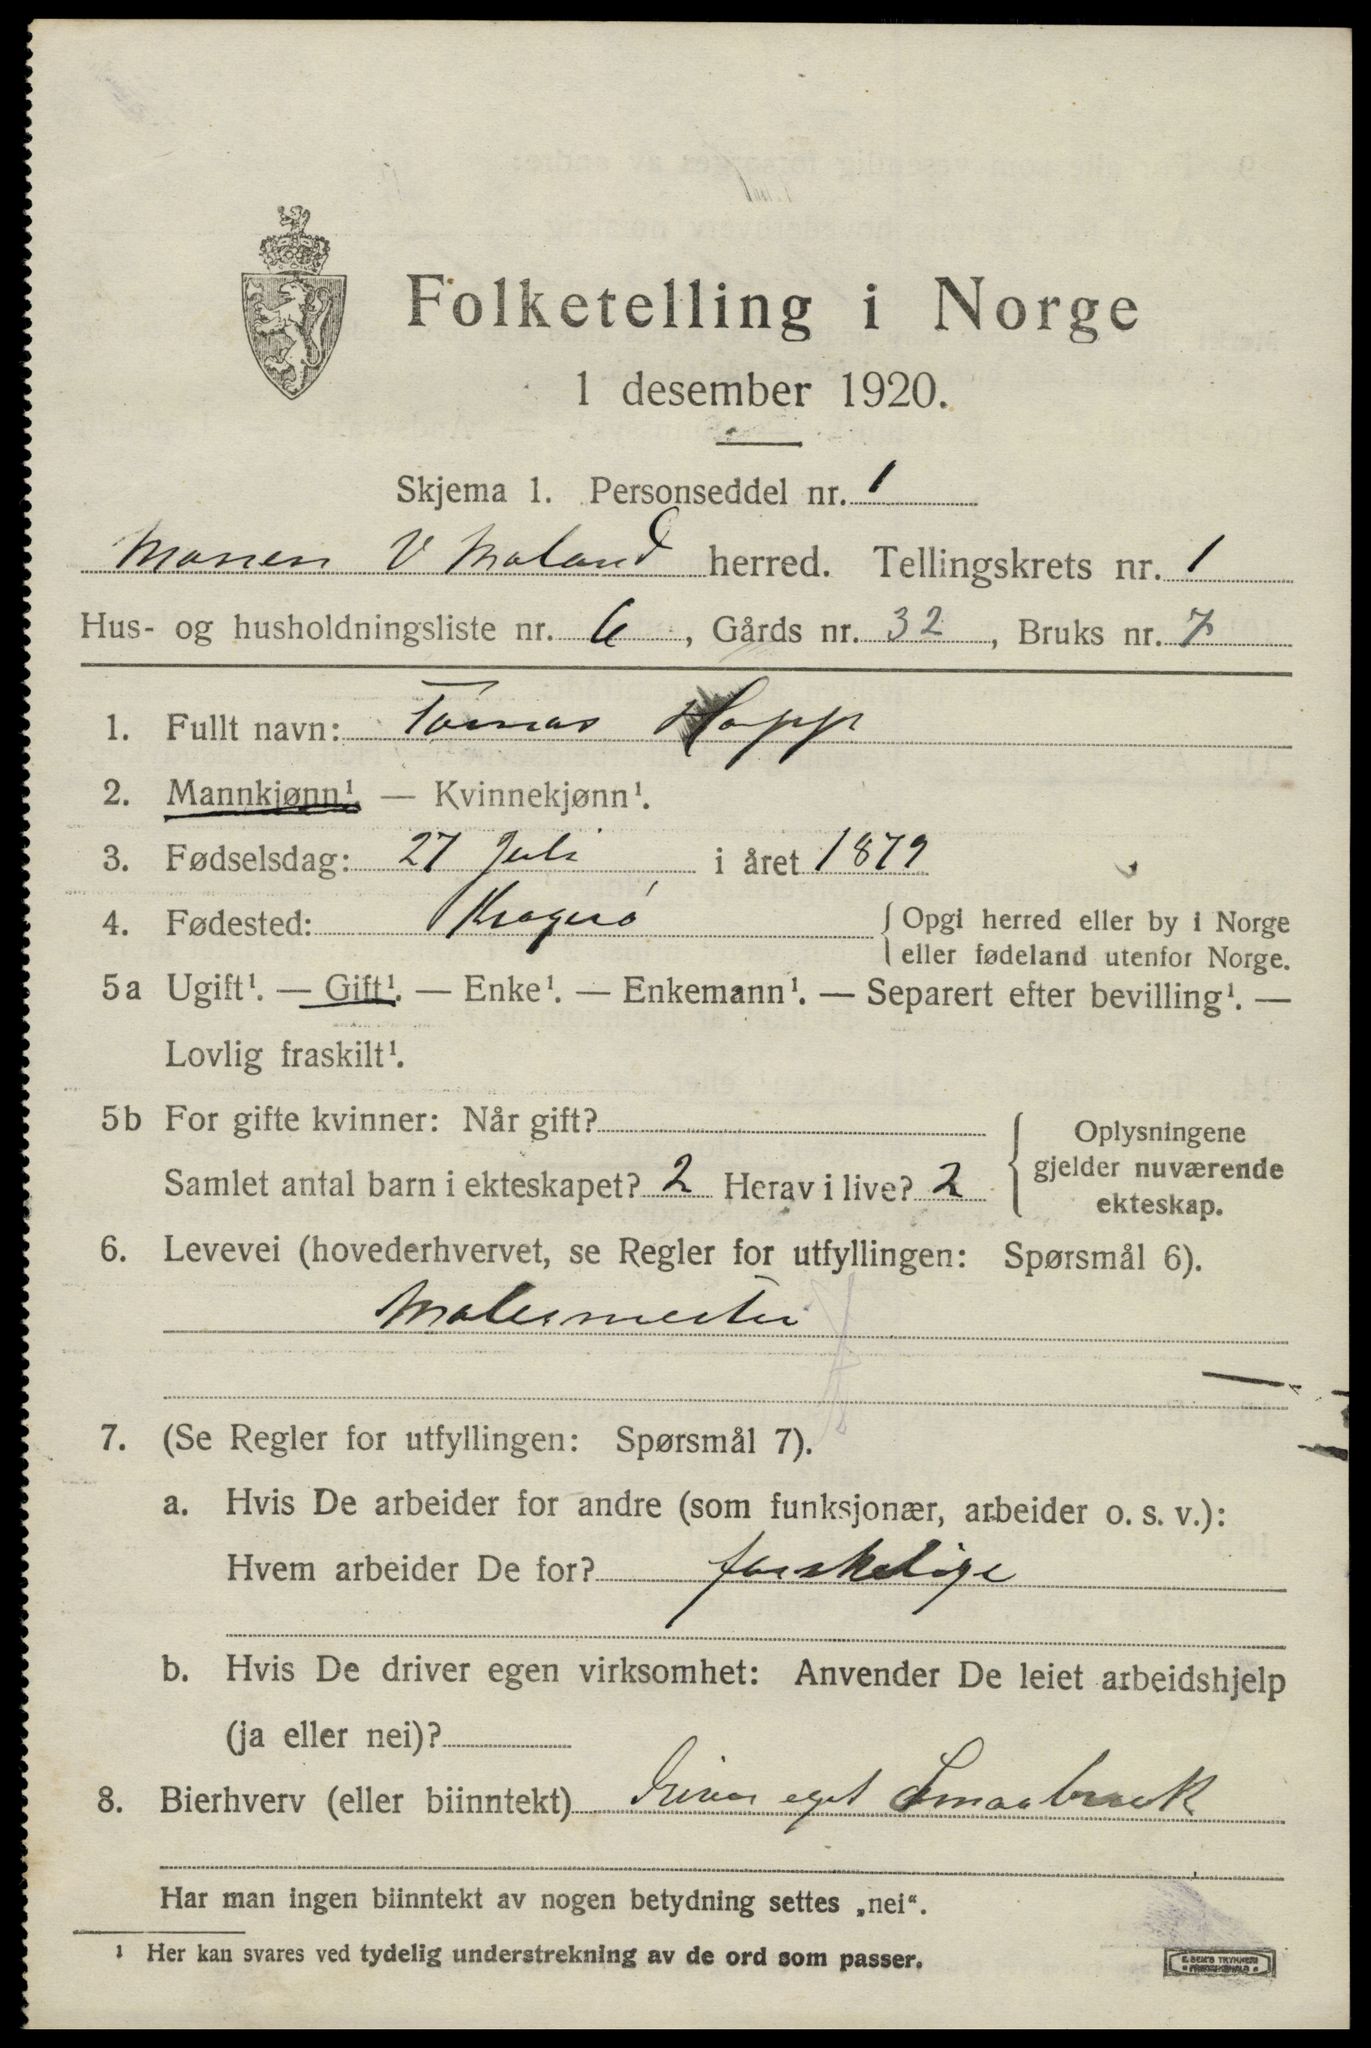 Folketelling i Norge
1 desember 1920.
Skjema 1. Personseddel nr. 1
V Moland herred. Tellingskrets nr. 1
Hus- og husholdningsliste nr. 6, Gårds nr. 32, Bruks nr. 7
1. Fullt navn: Tomas Hopp
2. Mannkjønn¹. — Kvinnekjønn¹.
3. Fødselsdag: 27 Juli i året 1879
4. Fødested: Kragerø { Opgi herred eller by i Norge
eller fødeland utenfor Norge.
5a Ugift¹. — Gift¹. — Enke¹. — Enkemann¹. — Separert efter bevilling¹. —
Lovlig fraskilt¹.
5b For gifte kvinner: Når gift?
Samlet antal barn i ekteskapet? 2 Herav i live? 2
Oplysningene
gjelder nuværende
ekteskap.
6. Levevei (hovederhvervet, se Regler for utfyllingen: Spørsmål 6).
Malermester
7. (Se Regler for utfyllingen: Spørsmål 7).
a. Hvis De arbeider for andre (som funksjonær, arbeider o. s. v.):
Hvem arbeider De for? forskelige
b. Hvis De driver egen virksomhet: Anvender De leiet arbeidshjelp
(ja eller nei)?
8. Bierhverv (eller biinntekt) eget Smaabruk
Har man ingen biinntekt av nogen betydning settes „nei“.
¹ Her kan svares ved tydelig understrekning av de ord som passer.